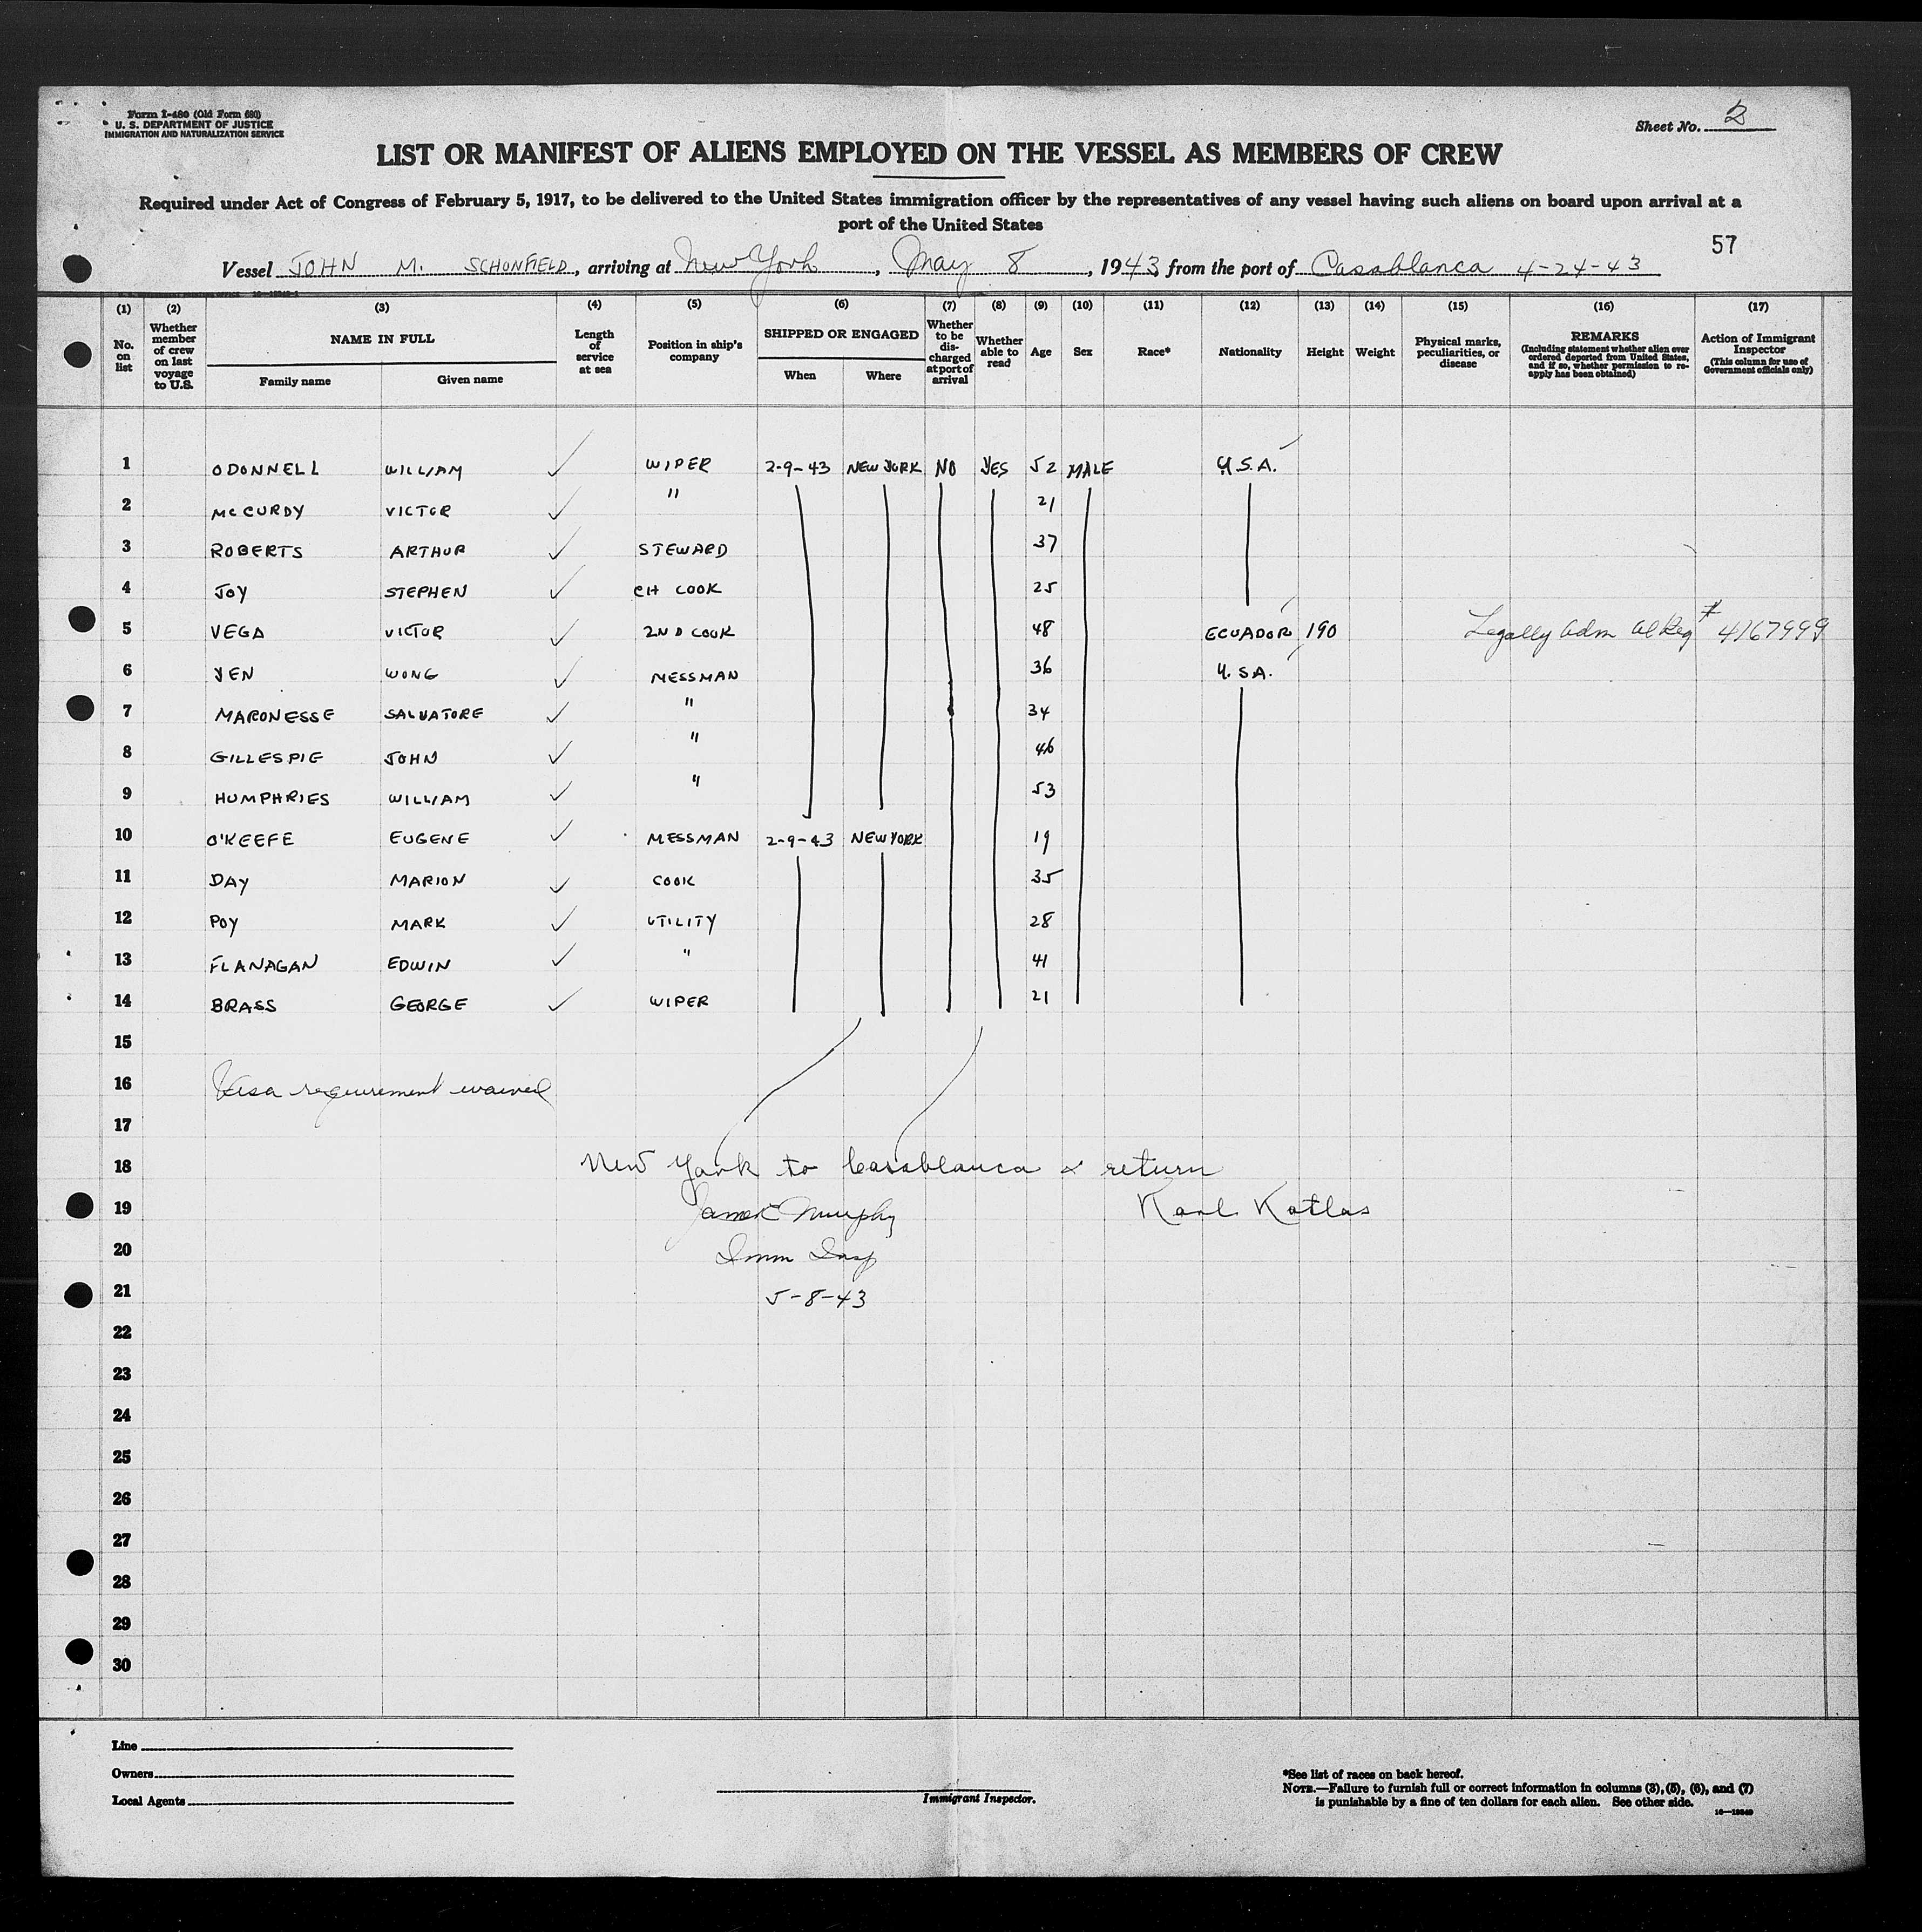 Form I-480 (Old Form 680)
U. S. DEPARTMENT OF JUSTICE
IMMIGRATION AND NATURALIZATION SERVICE
Sheet No. 2
LIST OR MANIFEST OF ALIENS EMPLOYED ON THE VESSEL AS MEMBERS OF CREW
Required under Act of Congress of February 5, 1917, to be delivered to the United States immigration officer by the representatives of any vessel having such aliens on board upon arrival at a
port of the United States
57
Vessel JOHN M. SCHONFIELD, arriving at New York, May 8, 1943 from the port of Casablanca 4-24-43
(1) No. on list
(2) Whether member of crew on last voyage to U.S.
(3) NAME IN FULL Family name Given name
(4) Length of service at sea
(5) Position in ship's company
(6) SHIPPED OR ENGAGED When Where
(7) Whether to be dis-charged at port of arrival
(8) Whether able to read
(9) Age
(10) Sex
(11) Race*
(12) Nationality
(13) Height
(14) Weight
(15) Physical marks, peculiarities, or disease
(16) REMARKS (Including statement whether alien ever ordered deported from United States, and if so, whether permission to re-apply has been obtained)
(17) Action of Immigrant Inspector (This column for use of Government officials only)
1 ODONNELL WILLIAM ✓ WIPER 2-9-43 NEW YORK NO YES 52 MALE U.S.A.
2 McCURDY VICTOR ✓ " 21
3 ROBERTS ARTHUR ✓ STEWARD 37
4 JOY STEPHEN ✓ CH COOK 25
5 VEGA VICTOR ✓ 2ND COOK 48 ECUADOR 190 Legally Adm Al Reg # 4167999
6 YEN WONG ✓ MESSMAN 36 U.S.A.
7 MARONESSE SALVATORE ✓ " 34
8 GILLESPIE JOHN ✓ " 46
9 HUMPHRIES WILLIAM ✓ " 53
10 O'KEEFE EUGENE ✓ MESSMAN 2-9-43 NEW YORK 19
11 DAY MARION ✓ COOK 35
12 POY MARK ✓ UTILITY 28
13 FLANAGAN EDWIN ✓ " 41
14 BRASS GEORGE ✓ WIPER 21
15
16 Visa requirement waived
17
18 New York to Casablanca & return
19 James Murphy Karl Katlas
20 Imm Insp
21 5-8-43
22
23
24
25
26
27
28
29
30
Line
Owners
Local Agents
Immigrant Inspector.
*See list of races on back hereof.
NOTE.—Failure to furnish full or correct information in columns (3), (5), (6), and (7)
is punishable by a fine of ten dollars for each alien. See other side.